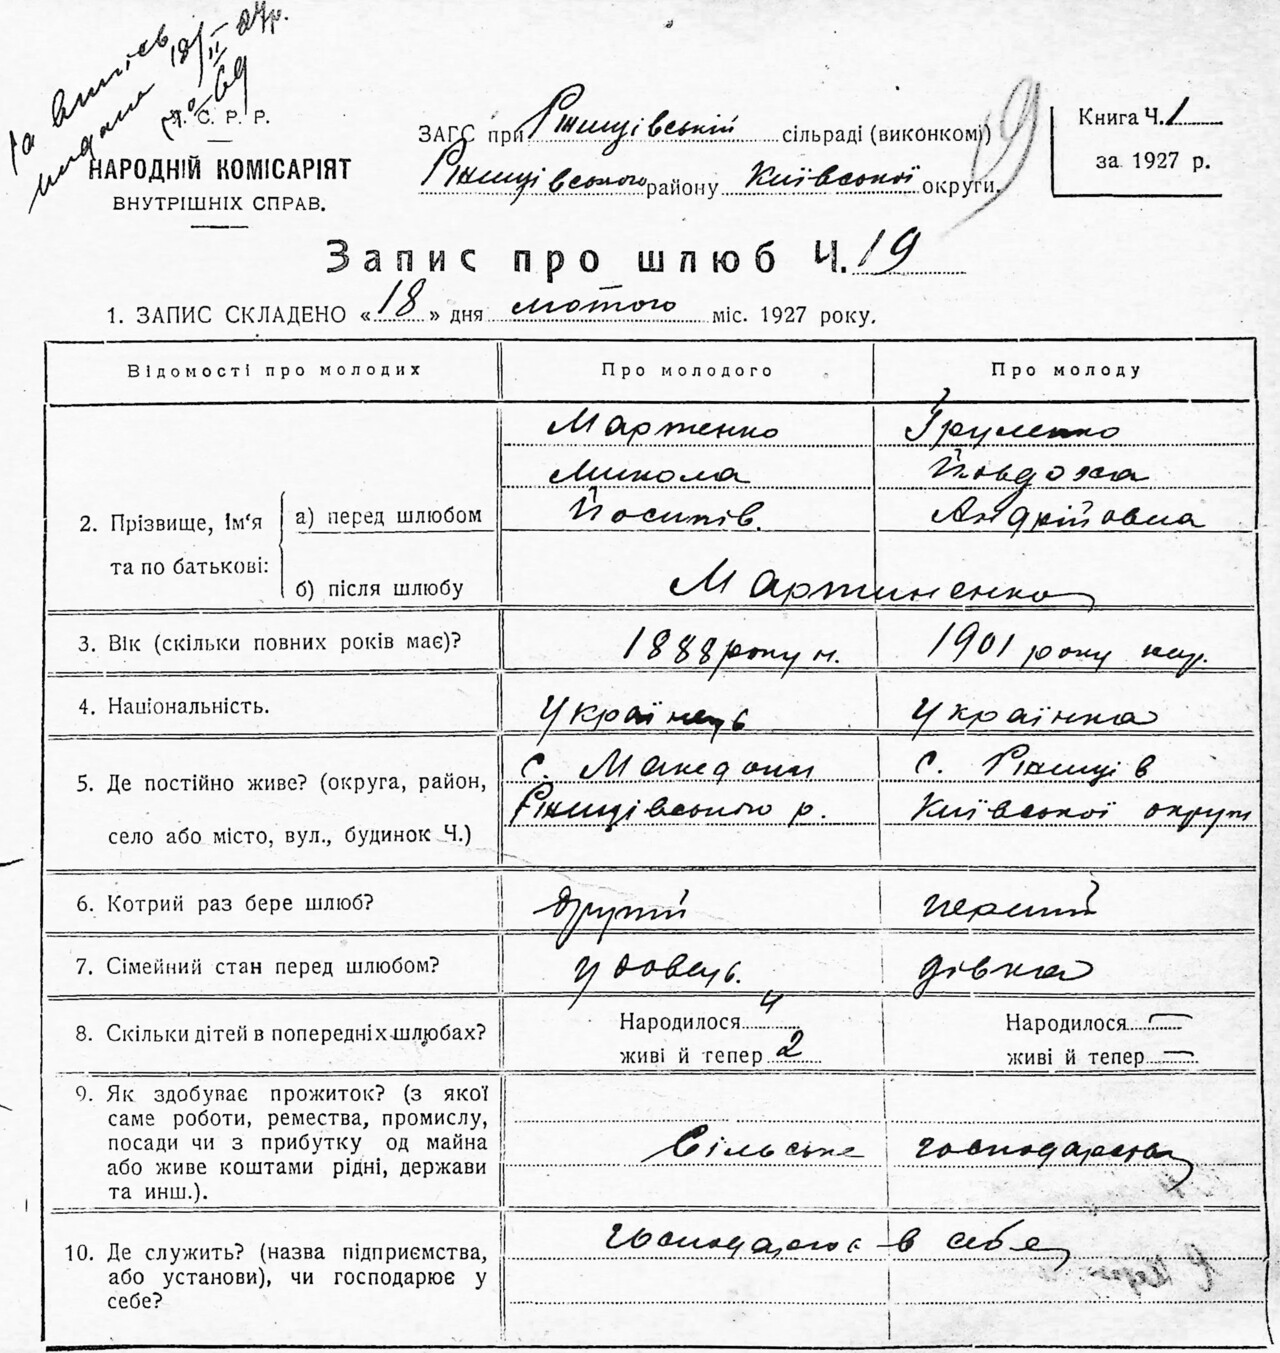 за випись
видана 18/II 27р.
№ 69
У. С. Р. Р.
НАРОДНІЙ КОМІСАРІЯТ
ВНУТРІШНІХ СПРАВ.
ЗАГС при Ржищівській сільраді (виконком)
Ржищівського району Київської округи.
19
Книга Ч. 1
за 1927 р.
Запис про шлюб Ч. 19
1. ЗАПИС СКЛАДЕНО «18» дня лютого міс. 1927 року.
Відомості про молодих
Про молодого
Про молоду
2. Прізвище, Ім'я
та по батькові:
а) перед шлюбом
б) після шлюбу
Марженко
Микола
Йосипів.
Груленко
Йовдоха
Андрійовна
Мартиненко
3. Вік (скільки повних років має)?
1888 року н.
1901 року нар.
4. Національність.
Українець
Українка
5. Де постійно живе? (округа, район,
село або місто, вул., будинок Ч.)
с. Македони
Ржищівського р.
с. Ржищів
Київської округи
6. Котрий раз бере шлюб?
другий
перший
7. Сімейний стан перед шлюбом?
удовець.
дівка
8. Скільки дітей в попередніх шлюбах?
Народилося 4
живі й тепер 2
Народилося —
живі й тепер —
9. Як здобуває прожиток? (з якої
саме роботи, ремества, промислу,
посади чи з прибутку од майна
або живе коштами рідні, держави
та инш.).
Сільське господарство
10. Де служить? (назва підприємства,
або установи), чи господарює у
себе?
господарює в себе